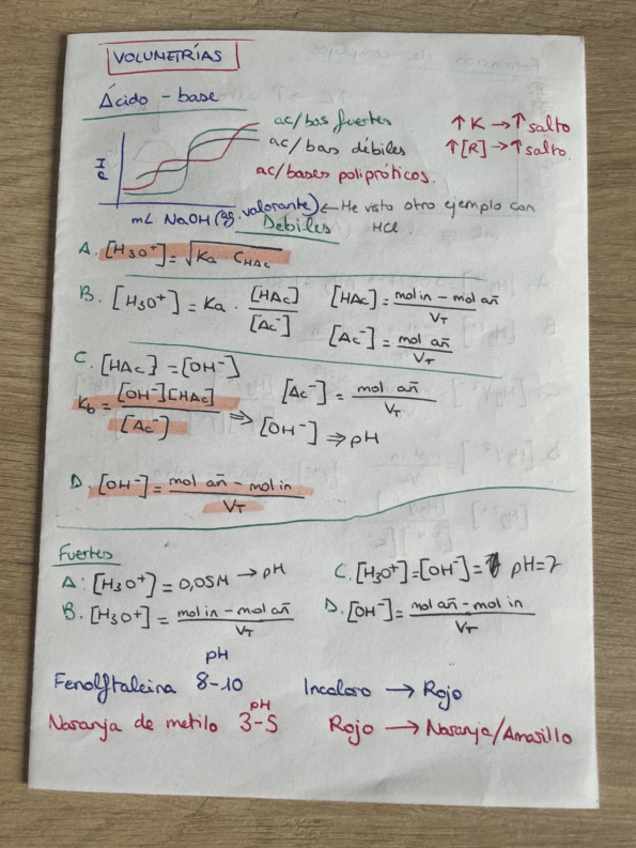 VOLUMETRÍAS
Ácido - base
ac/bas fuertes
ac/bas débiles
ac/bases polipróticos.
↑K → ↑salto
↑[R] → ↑salto.
pH
mL NaOH (ag. valorante) ← He visto otro ejemplo con HCl
Débiles
A. [H3O+] = √Ka · CHAc
B. [H3O+] = Ka · [HAc]/[Ac-] [HAc] = mol in - mol añ/VT
[Ac-] = mol añ/VT
C. [HAc] = [OH-] [Ac-] = mol añ/VT
Kb = [OH-][HAc]/[Ac-] ⇒ [OH-] ⇒ pH
D. [OH-] = mol añ - mol in/VT
Fuertes
A: [H3O+] = 0,05M → pH
B. [H3O+] = mol in - mol añ/VT
C. [H3O+] = [OH-] = pH = 7
D. [OH-] = mol añ - mol in/VT
pH
Fenolftaleina 8-10 Incoloro → Rojo
pH
Naranja de metilo 3-5 Rojo → Naranja/Amarillo